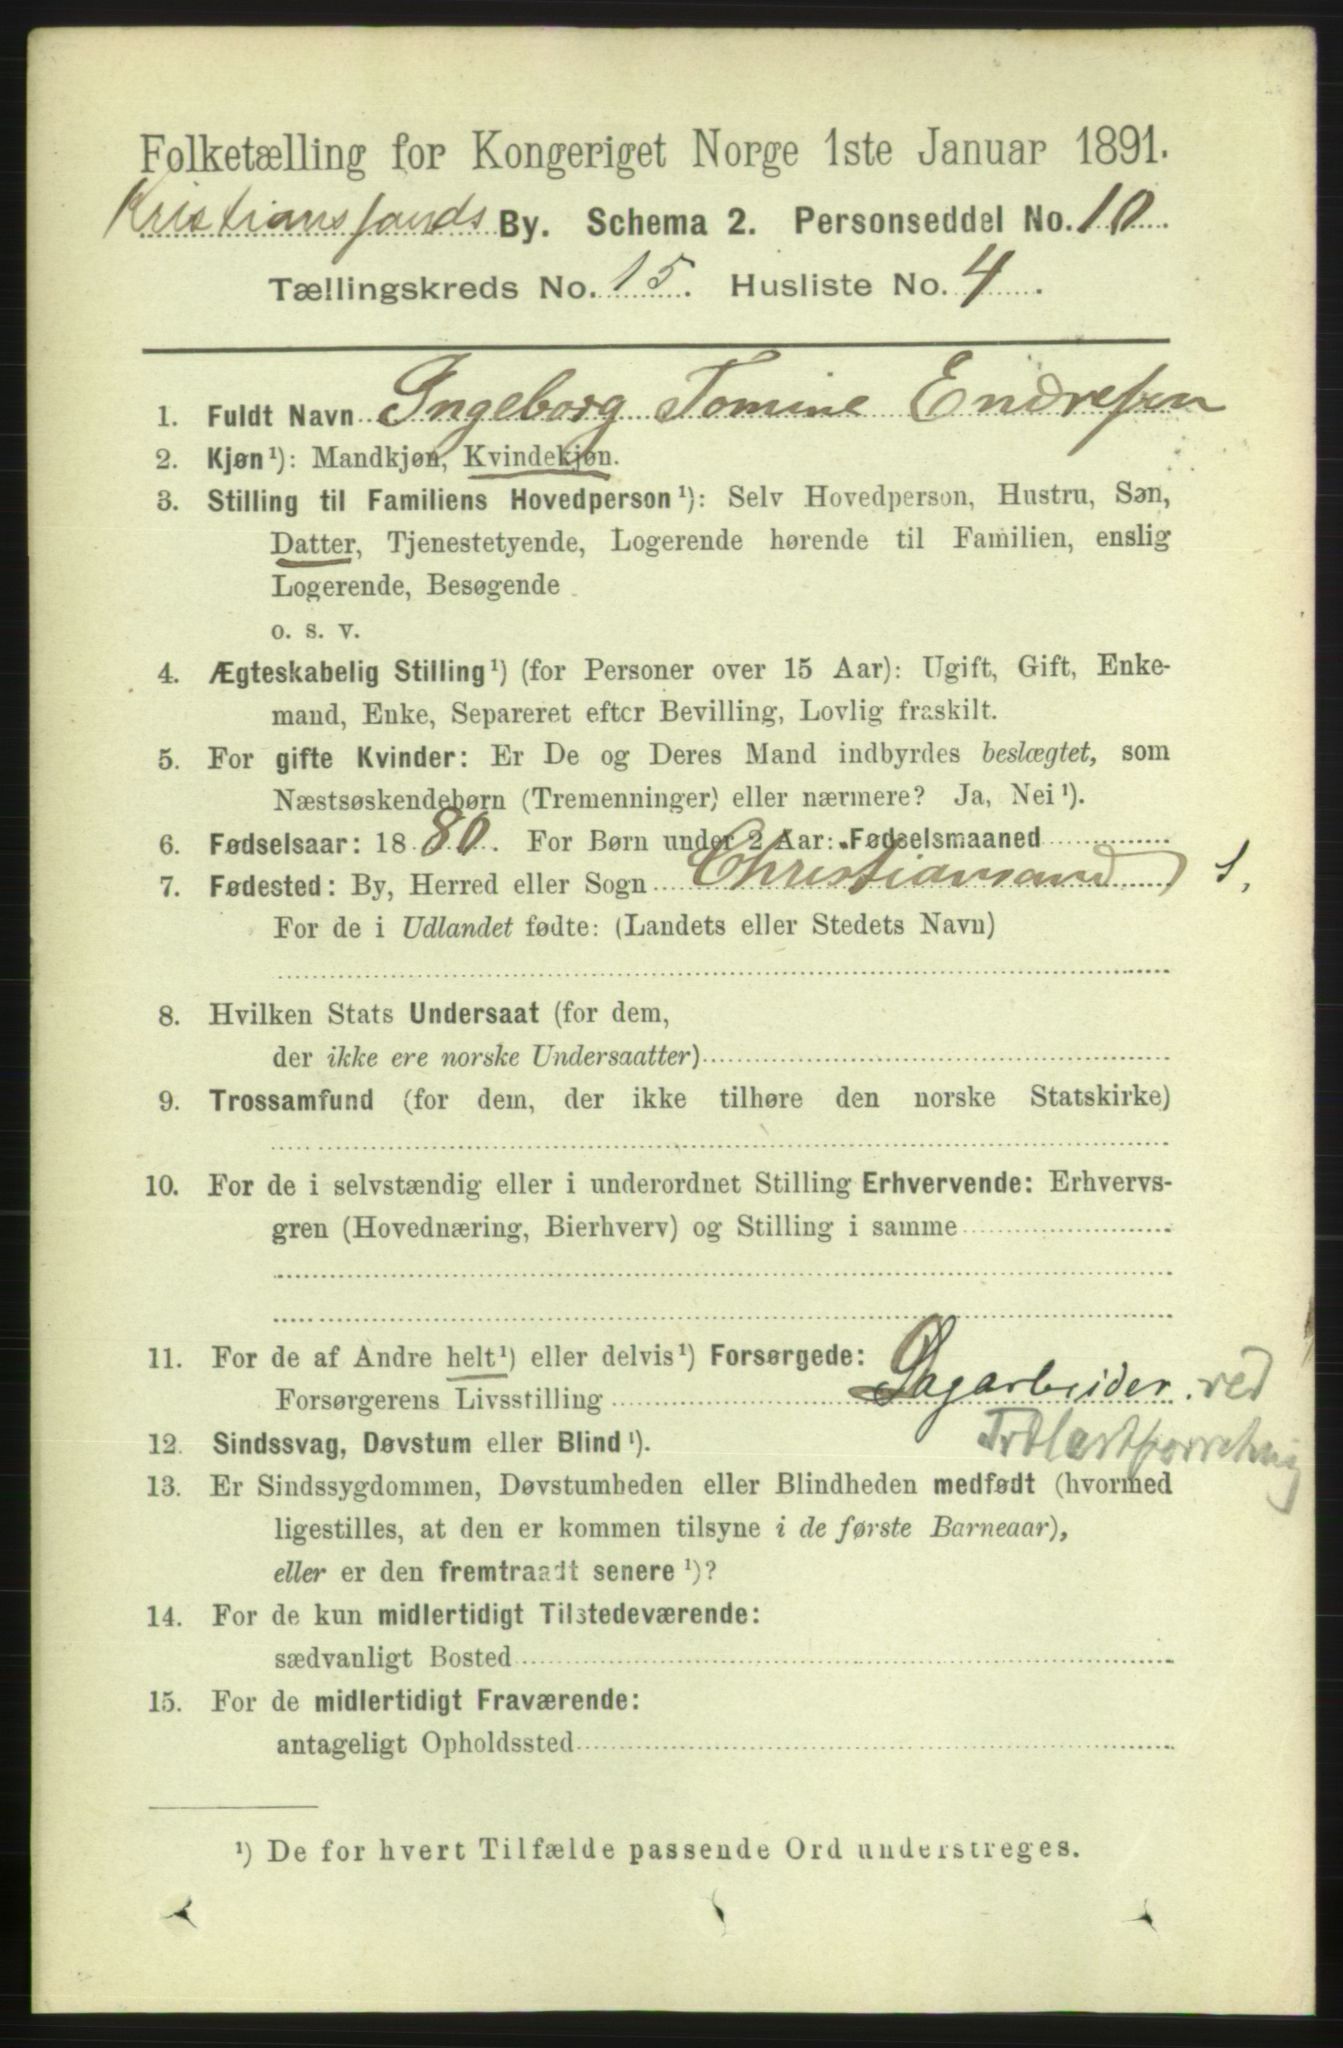 Folketælling for Kongeriget Norge 1ste Januar 1891.
Kristianssands By. Schema 2. Personseddel No. 10
Tællingskreds No. 15. Husliste No. 4.
1. Fuldt Navn Ingeborg Tomine Endresen
2. Kjøn¹): Mandkjøn, Kvindekjøn.
3. Stilling til Familiens Hovedperson¹): Selv Hovedperson, Hustru, Søn,
Datter, Tjenestetyende, Logerende hørende til Familien, enslig
Logerende, Besøgende
o. s. v.
4. Ægteskabelig Stilling¹) (for Personer over 15 Aar): Ugift, Gift, Enke-
mand, Enke, Separeret efter Bevilling, Lovlig fraskilt.
5. For gifte Kvinder: Er De og Deres Mand indbyrdes beslægtet, som
Næstsøskendebørn (Tremenninger) eller nærmere? Ja, Nei¹).
6. Fødselsaar: 1880. For Børn under 2 Aar: Fødselsmaaned
7. Fødested: By, Herred eller Sogn Christiansand S,
For de i Udlandet fødte: (Landets eller Stedets Navn)
8. Hvilken Stats Undersaat (for dem,
der ikke ere norske Undersaatter)
9. Trossamfund (for dem, der ikke tilhøre den norske Statskirke)
10. For de i selvstændig eller i underordnet Stilling Erhvervende: Erhvervs-
gren (Hovednæring, Bierhverv) og Stilling i samme
11. For de af Andre helt¹) eller delvis¹) Forsørgede:
Forsørgerens Livsstilling Dagarbeider ved
Trælastforretning
12. Sindssvag, Døvstum eller Blind¹).
13. Er Sindssygdommen, Døvstumheden eller Blindheden medfødt (hvormed
ligestilles, at den er kommen tilsyne i de første Barneaar),
eller er den fremtraadt senere¹)?
14. For de kun midlertidigt Tilstedeværende:
sædvanligt Bosted
15. For de midlertidigt Fraværende:
antageligt Opholdssted
¹) De for hvert Tilfælde passende Ord understreges.